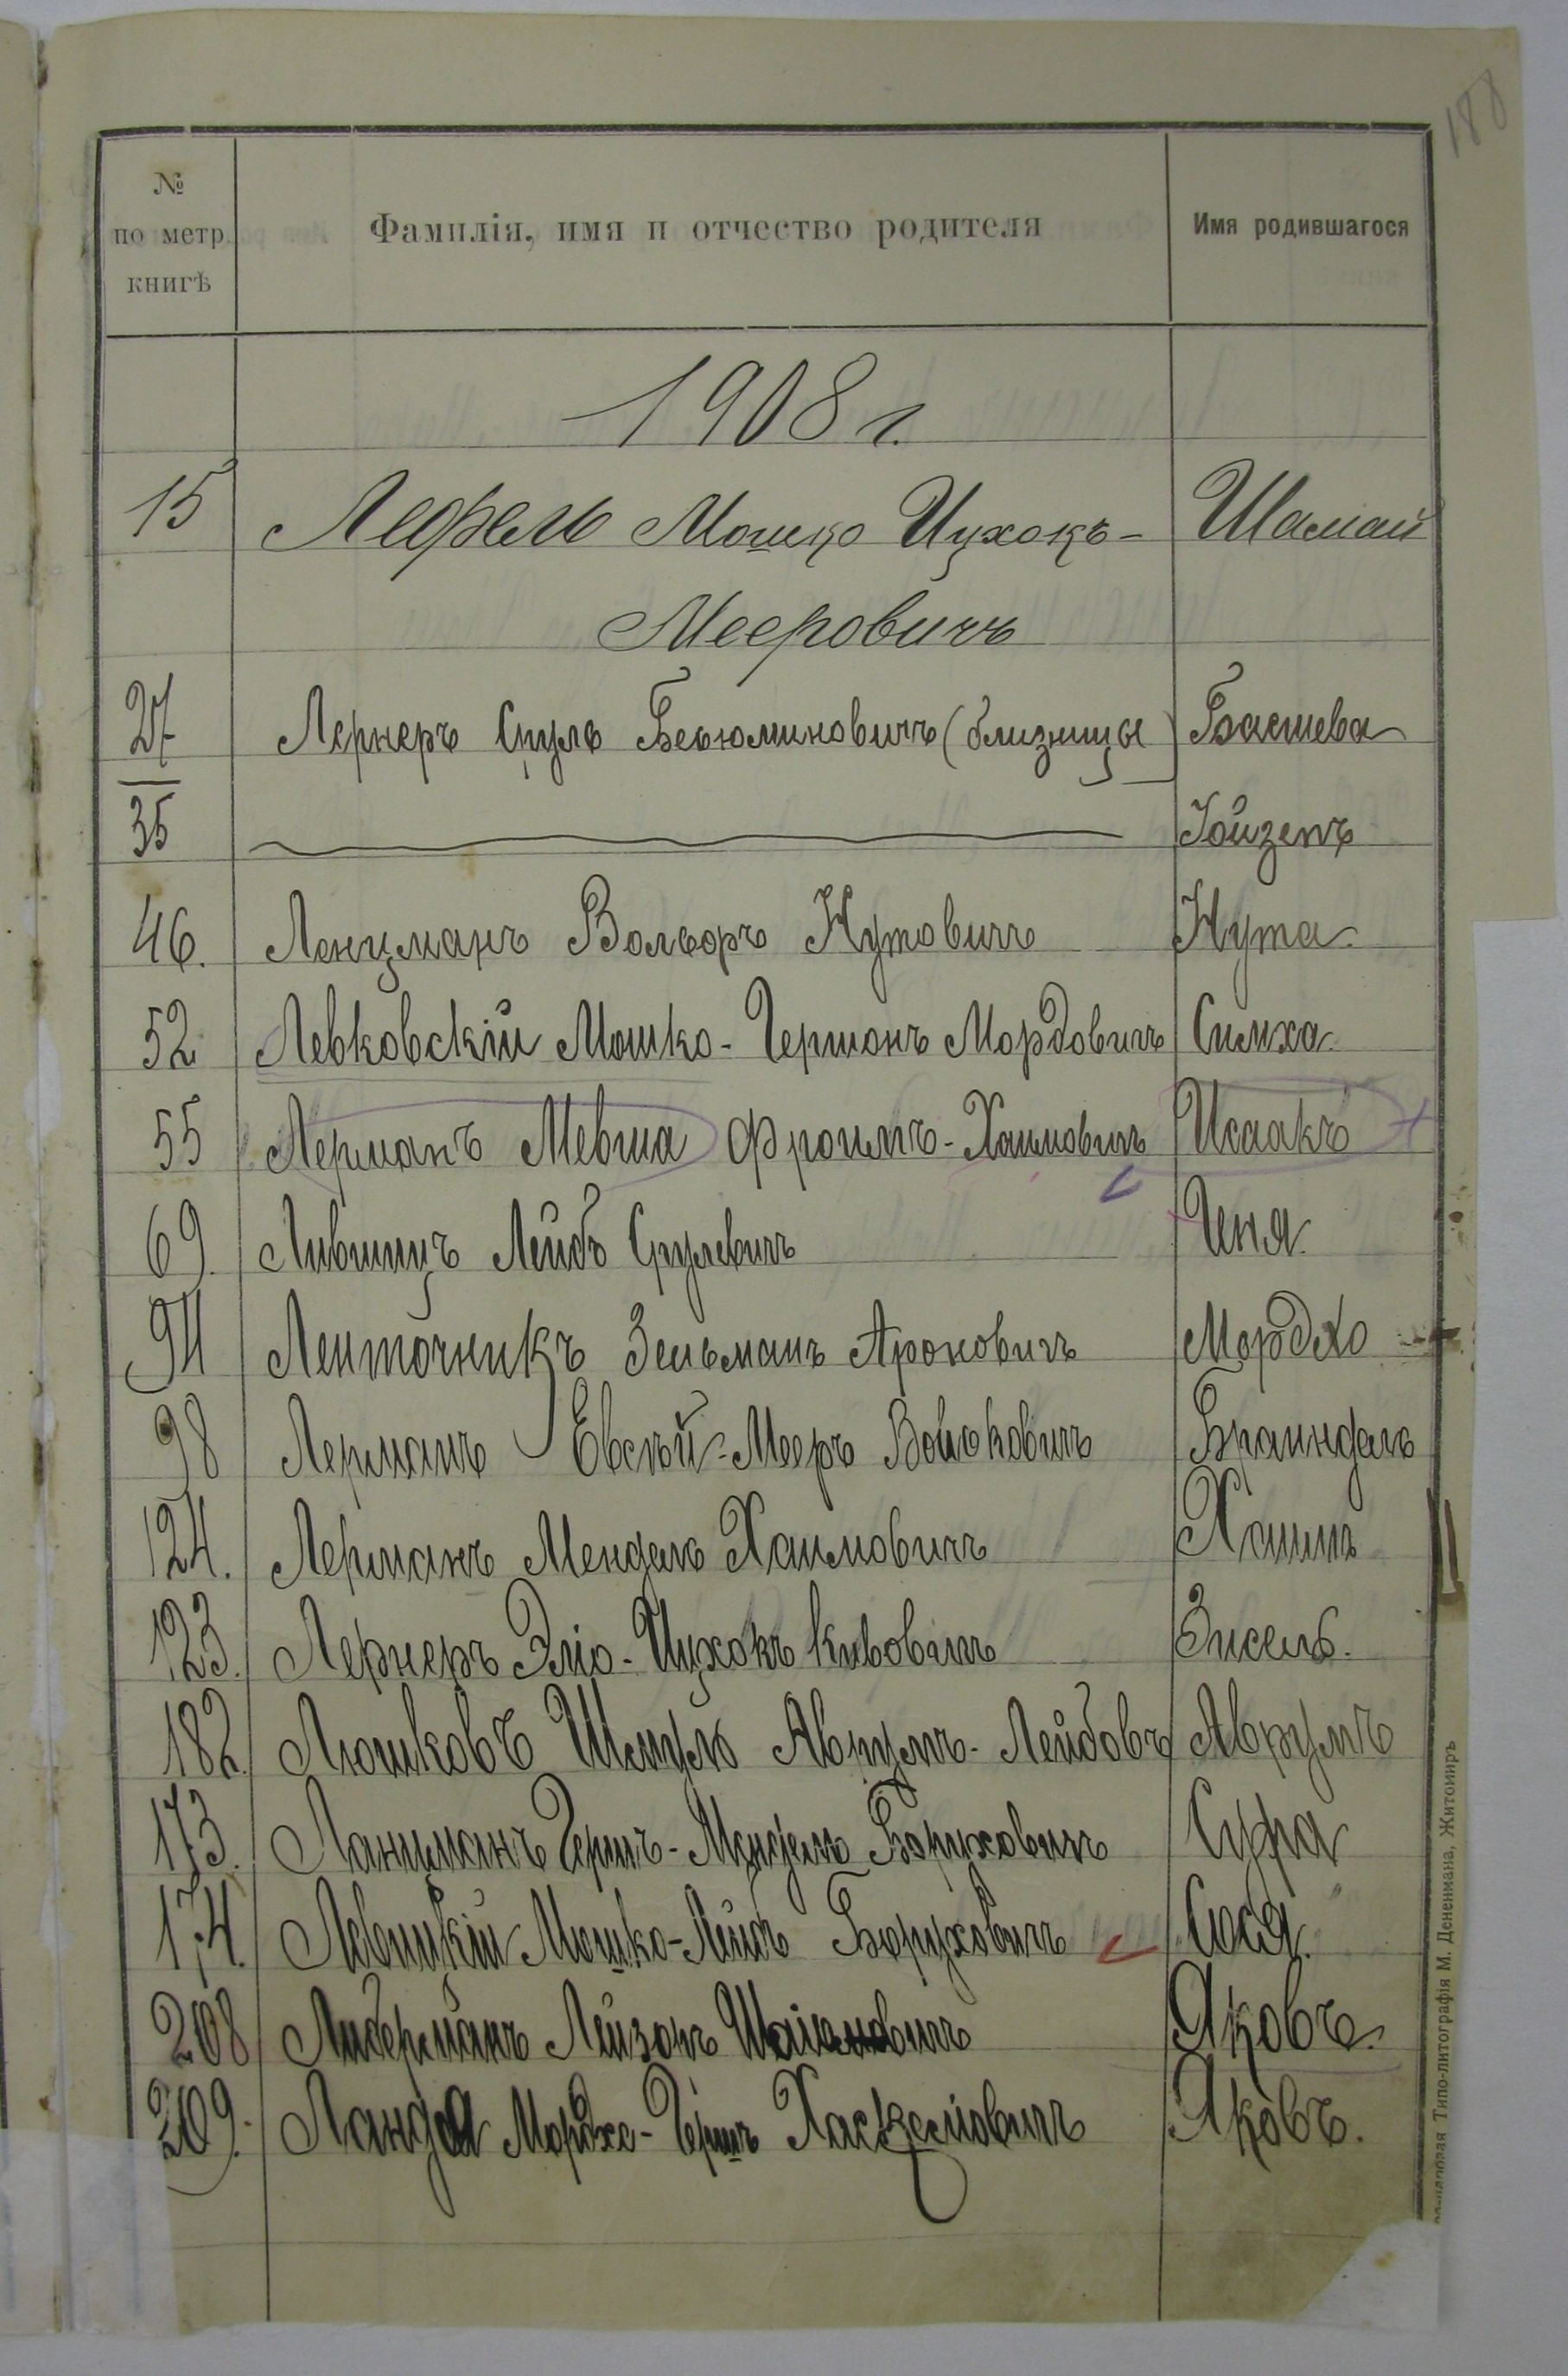 188
№
по метр.
книгѣ
Фамилія, имя и отчество родителя
Имя родившагося
1908 г.
15 Лефель Мошко Ицхокъ- Шамай
Мееровичъ
27 Лернеръ Сруль Беньюминовичъ (близнецы) Басшева
35 Іойзепъ
46. Ленцманъ Вольфъ Нутовичъ Нута
52 Левковскій Мошко-Гершонъ Мордовичъ Симха
55 Лерманъ Мевша Фроимъ-Хаимовичъ Исаакъ
69. Лившицъ Лейбъ Срулевичъ Геня
94 Ленточникъ Зельманъ Ароновичъ Мордхо
98 Лерманъ Евсѣй-Мееръ Волковичъ Браиндель
124. Лерманъ Мендель Хаимовичъ Хаимъ
123. Лернеръ Эліо-Ицхокъ Кивовичъ Зисель.
182. Люшковъ Шмуль Аврумъ-Лейбовъ Аврумъ
173. Ланцманъ Гершъ-Мендель Боруховичъ Сура
174. Левицкій Мошко-Лейбъ Боруховичъ Сося.
208 Либерманъ Лейзоръ Яковъ.
209. Ланда Мордхо-Гершъ Хаскелевичъ Яковъ.
Типо-литографія М. Дененмана, Житомиръ